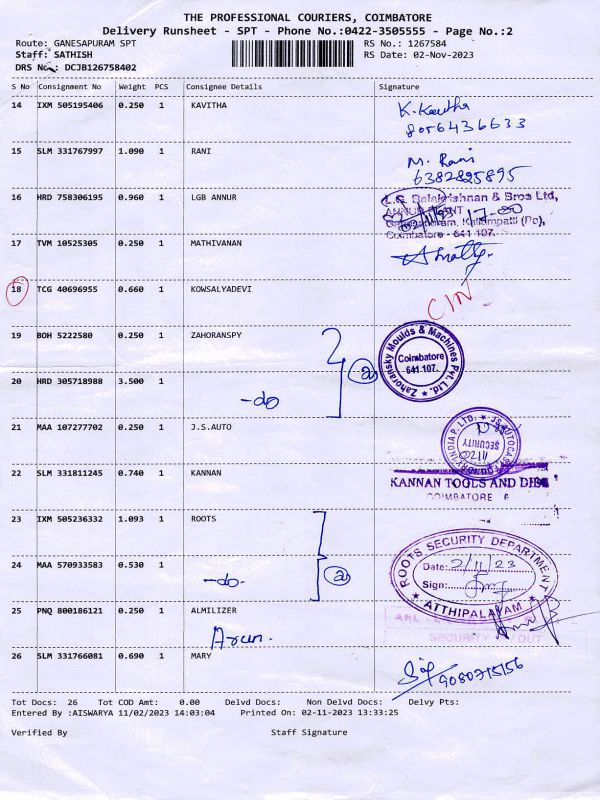 THE PROFESSIONAL COURIERS, COIMBATORE
Delivery Runsheet - SPT - Phone No.:0422-3505555 - Page No.:2
Route: GANESAPURAM SPT RS No.: 1267584
Staff: SATHISH RS Date: 02-Nov-2023
DRS No.: DCJB126758402
S No Consignment No Weight PCS Consignee Details Signature
14 IXM 505195406 0.250 1 KAVITHA K. Kavitha
8056436633
15 SLM 331767997 1.090 1 RANI M. Rani
6382825895
16 HRD 758306195 0.960 1 LGB ANNUR L.G. Balakrishnan & Bros Ltd,
ANNUR PLANT 17-00
Kallampatti (Po),
Coimbatore - 641 107.
17 TVM 10525305 0.250 1 MATHIVANAN
18 TCG 40696955 0.660 1 KOWSALYADEVI
19 BOH 5222580 0.250 1 ZAHORANSPY
Zahoransky Moulds & Machines Pvt. Ltd.
Coimbatore
641 107.
20 HRD 305718988 3.500 1 -do
21 MAA 107277702 0.250 1 J.S.AUTO
SECURITY
22 SLM 331811245 0.740 1 KANNAN KANNAN TOOLS AND
COIMBATORE 6
23 IXM 505236332 1.093 1 ROOTS
ROOTS SECURITY DEPARTMENT
Date: 2/11/23
Sign:
ATTHIPALAYAM
24 MAA 570933583 0.530 1 -do-
25 PNQ 800186121 0.250 1 ALMILIZER
Arun.
SECURITY OUT
26 SLM 331766081 0.690 1 MARY 9080715156
Tot Docs: 26 Tot COD Amt: 0.00 Delvd Docs: Non Delvd Docs: Delvy Pts:
Entered By :AISWARYA 11/02/2023 14:03:04 Printed On: 02-11-2023 13:33:25
Verified By Staff Signature